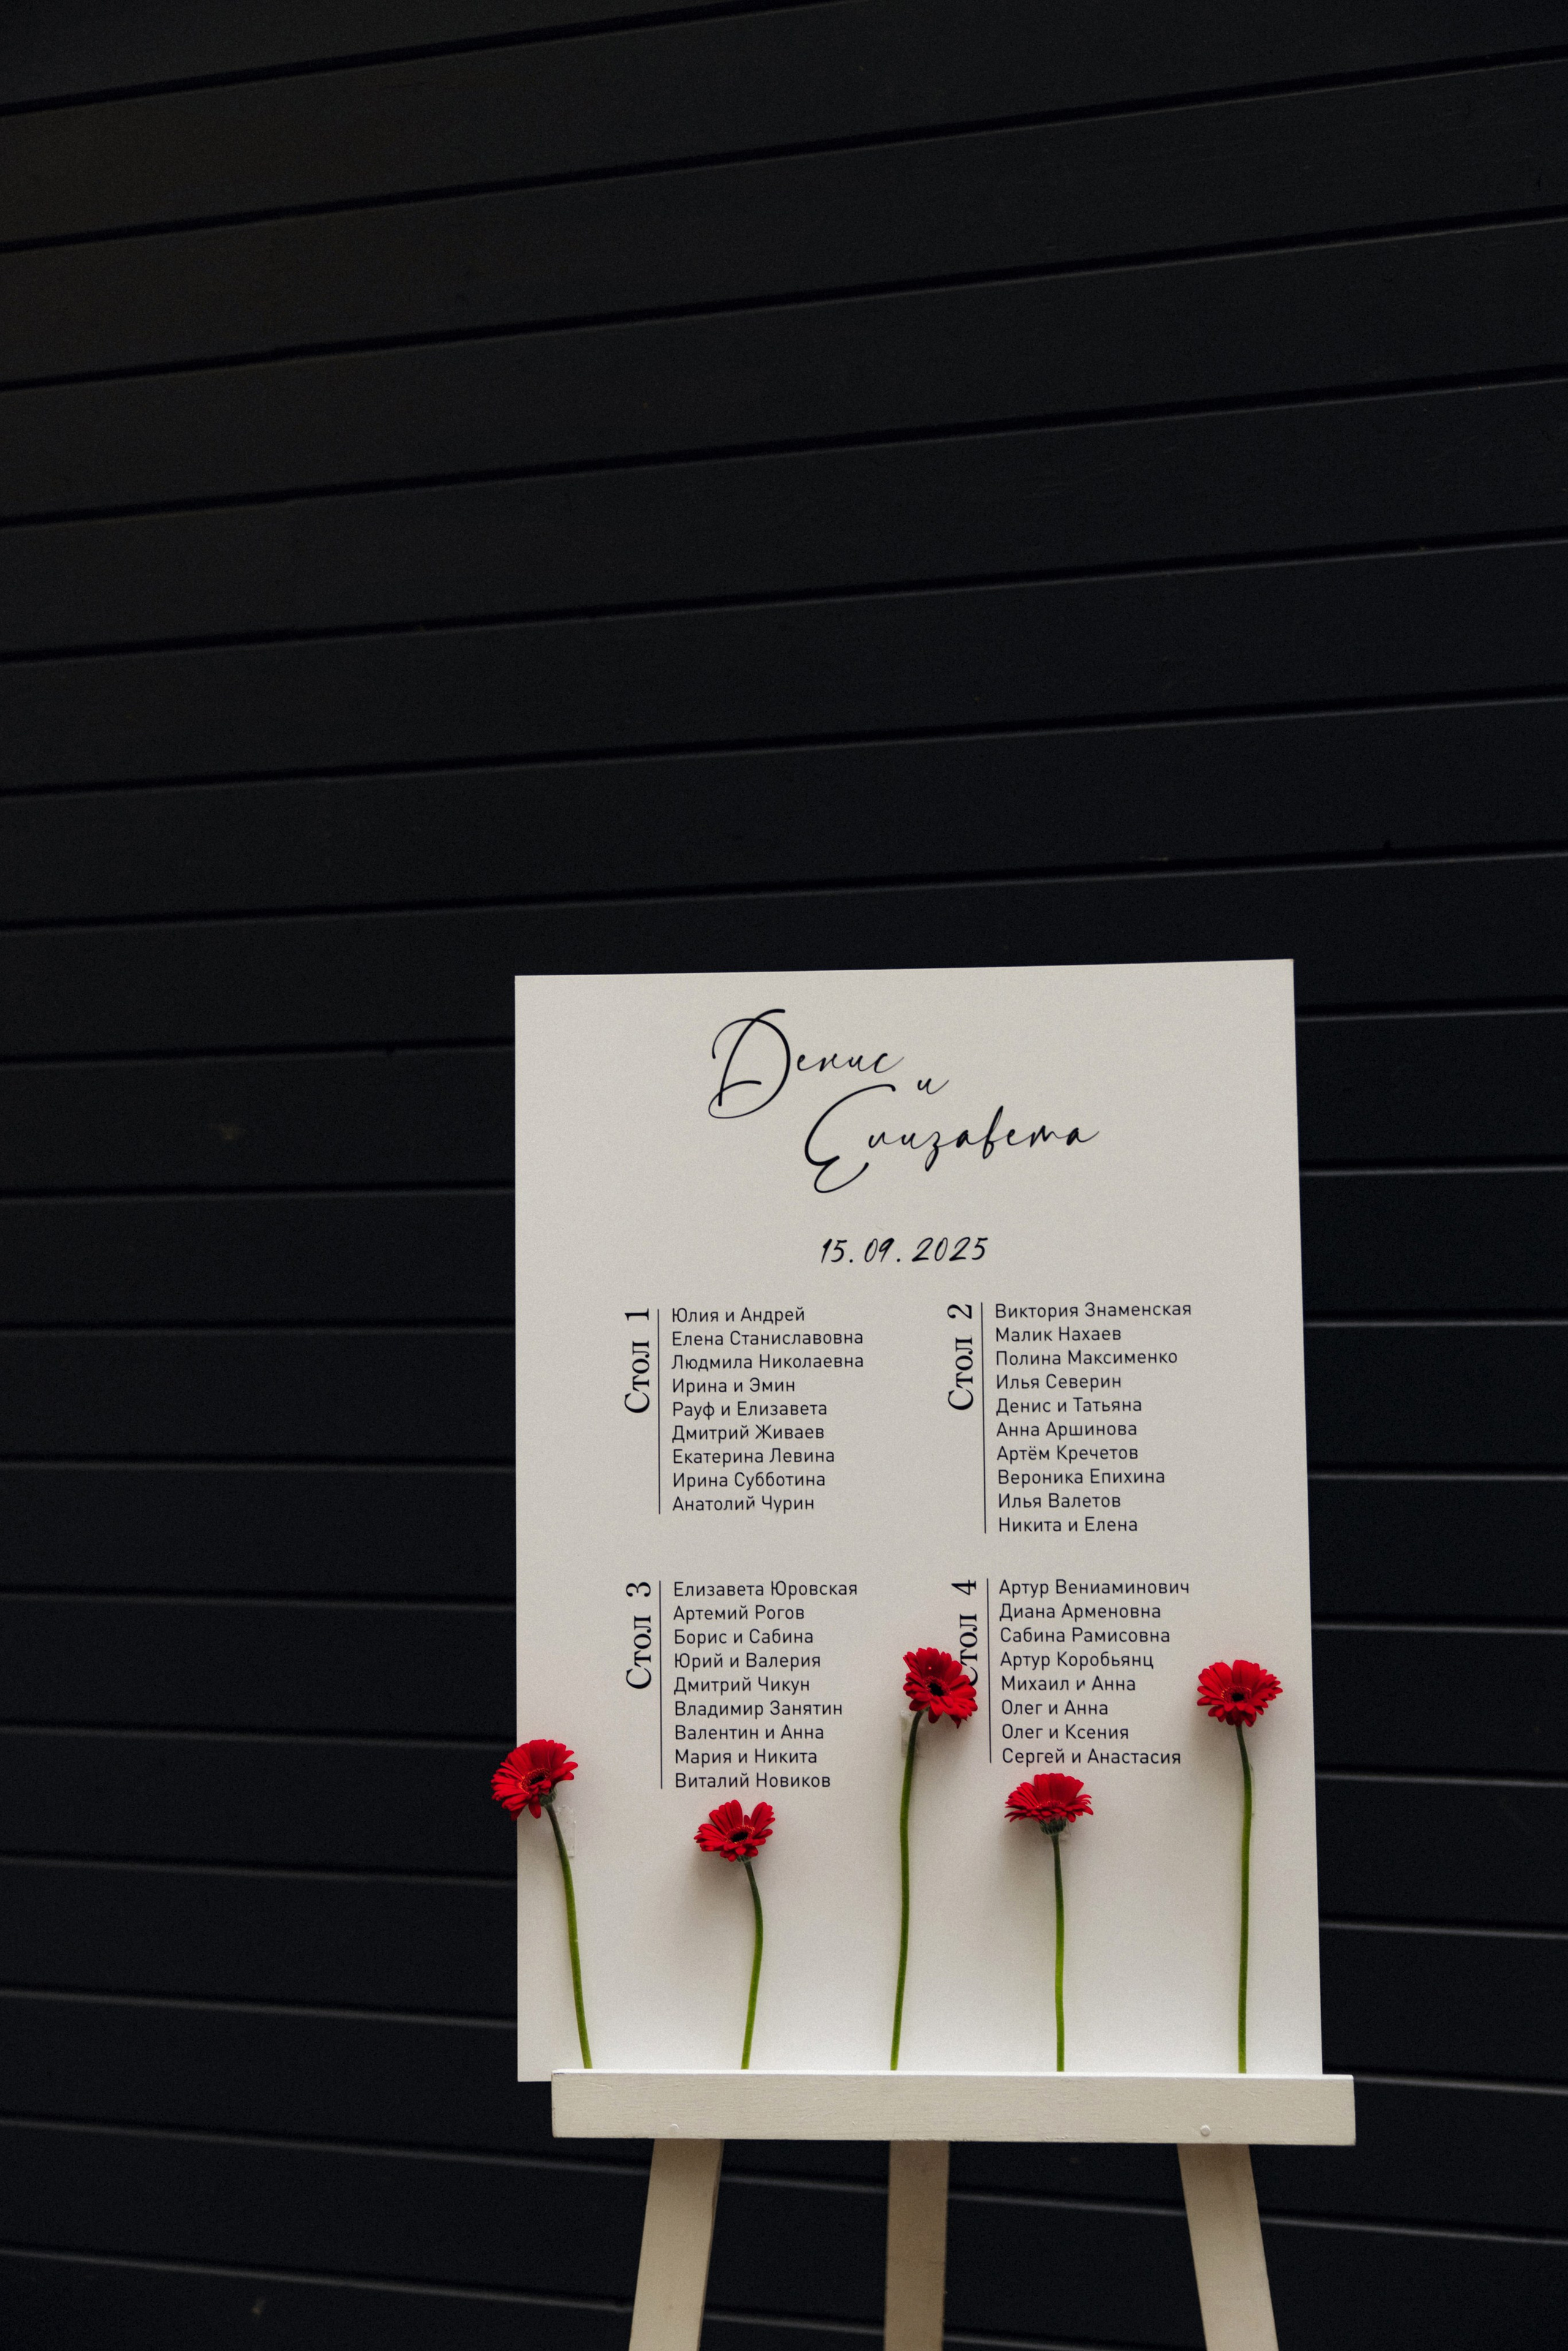 Денис
и
Елизавета
15.09.2025
Стол 1
Юлия и Андрей
Елена Станиславовна
Людмила Николаевна
Ирина и Эмин
Рауф и Елизавета
Дмитрий Живаев
Екатерина Левина
Ирина Субботина
Анатолий Чурин
Стол 2
Виктория Знаменская
Малик Нахаев
Полина Максименко
Илья Северин
Денис и Татьяна
Анна Аршинова
Артём Кречетов
Вероника Епихина
Илья Валетов
Никита и Елена
Стол 3
Елизавета Юровская
Артемий Рогов
Борис и Сабина
Юрий и Валерия
Дмитрий Чикун
Владимир Занятин
Валентин и Анна
Мария и Никита
Виталий Новиков
Стол 4
Артур Вениаминович
Диана Арменовна
Сабина Рамисовна
Артур Коробьянц
Михаил и Анна
Олег и Анна
Олег и Ксения
Сергей и Анастасия